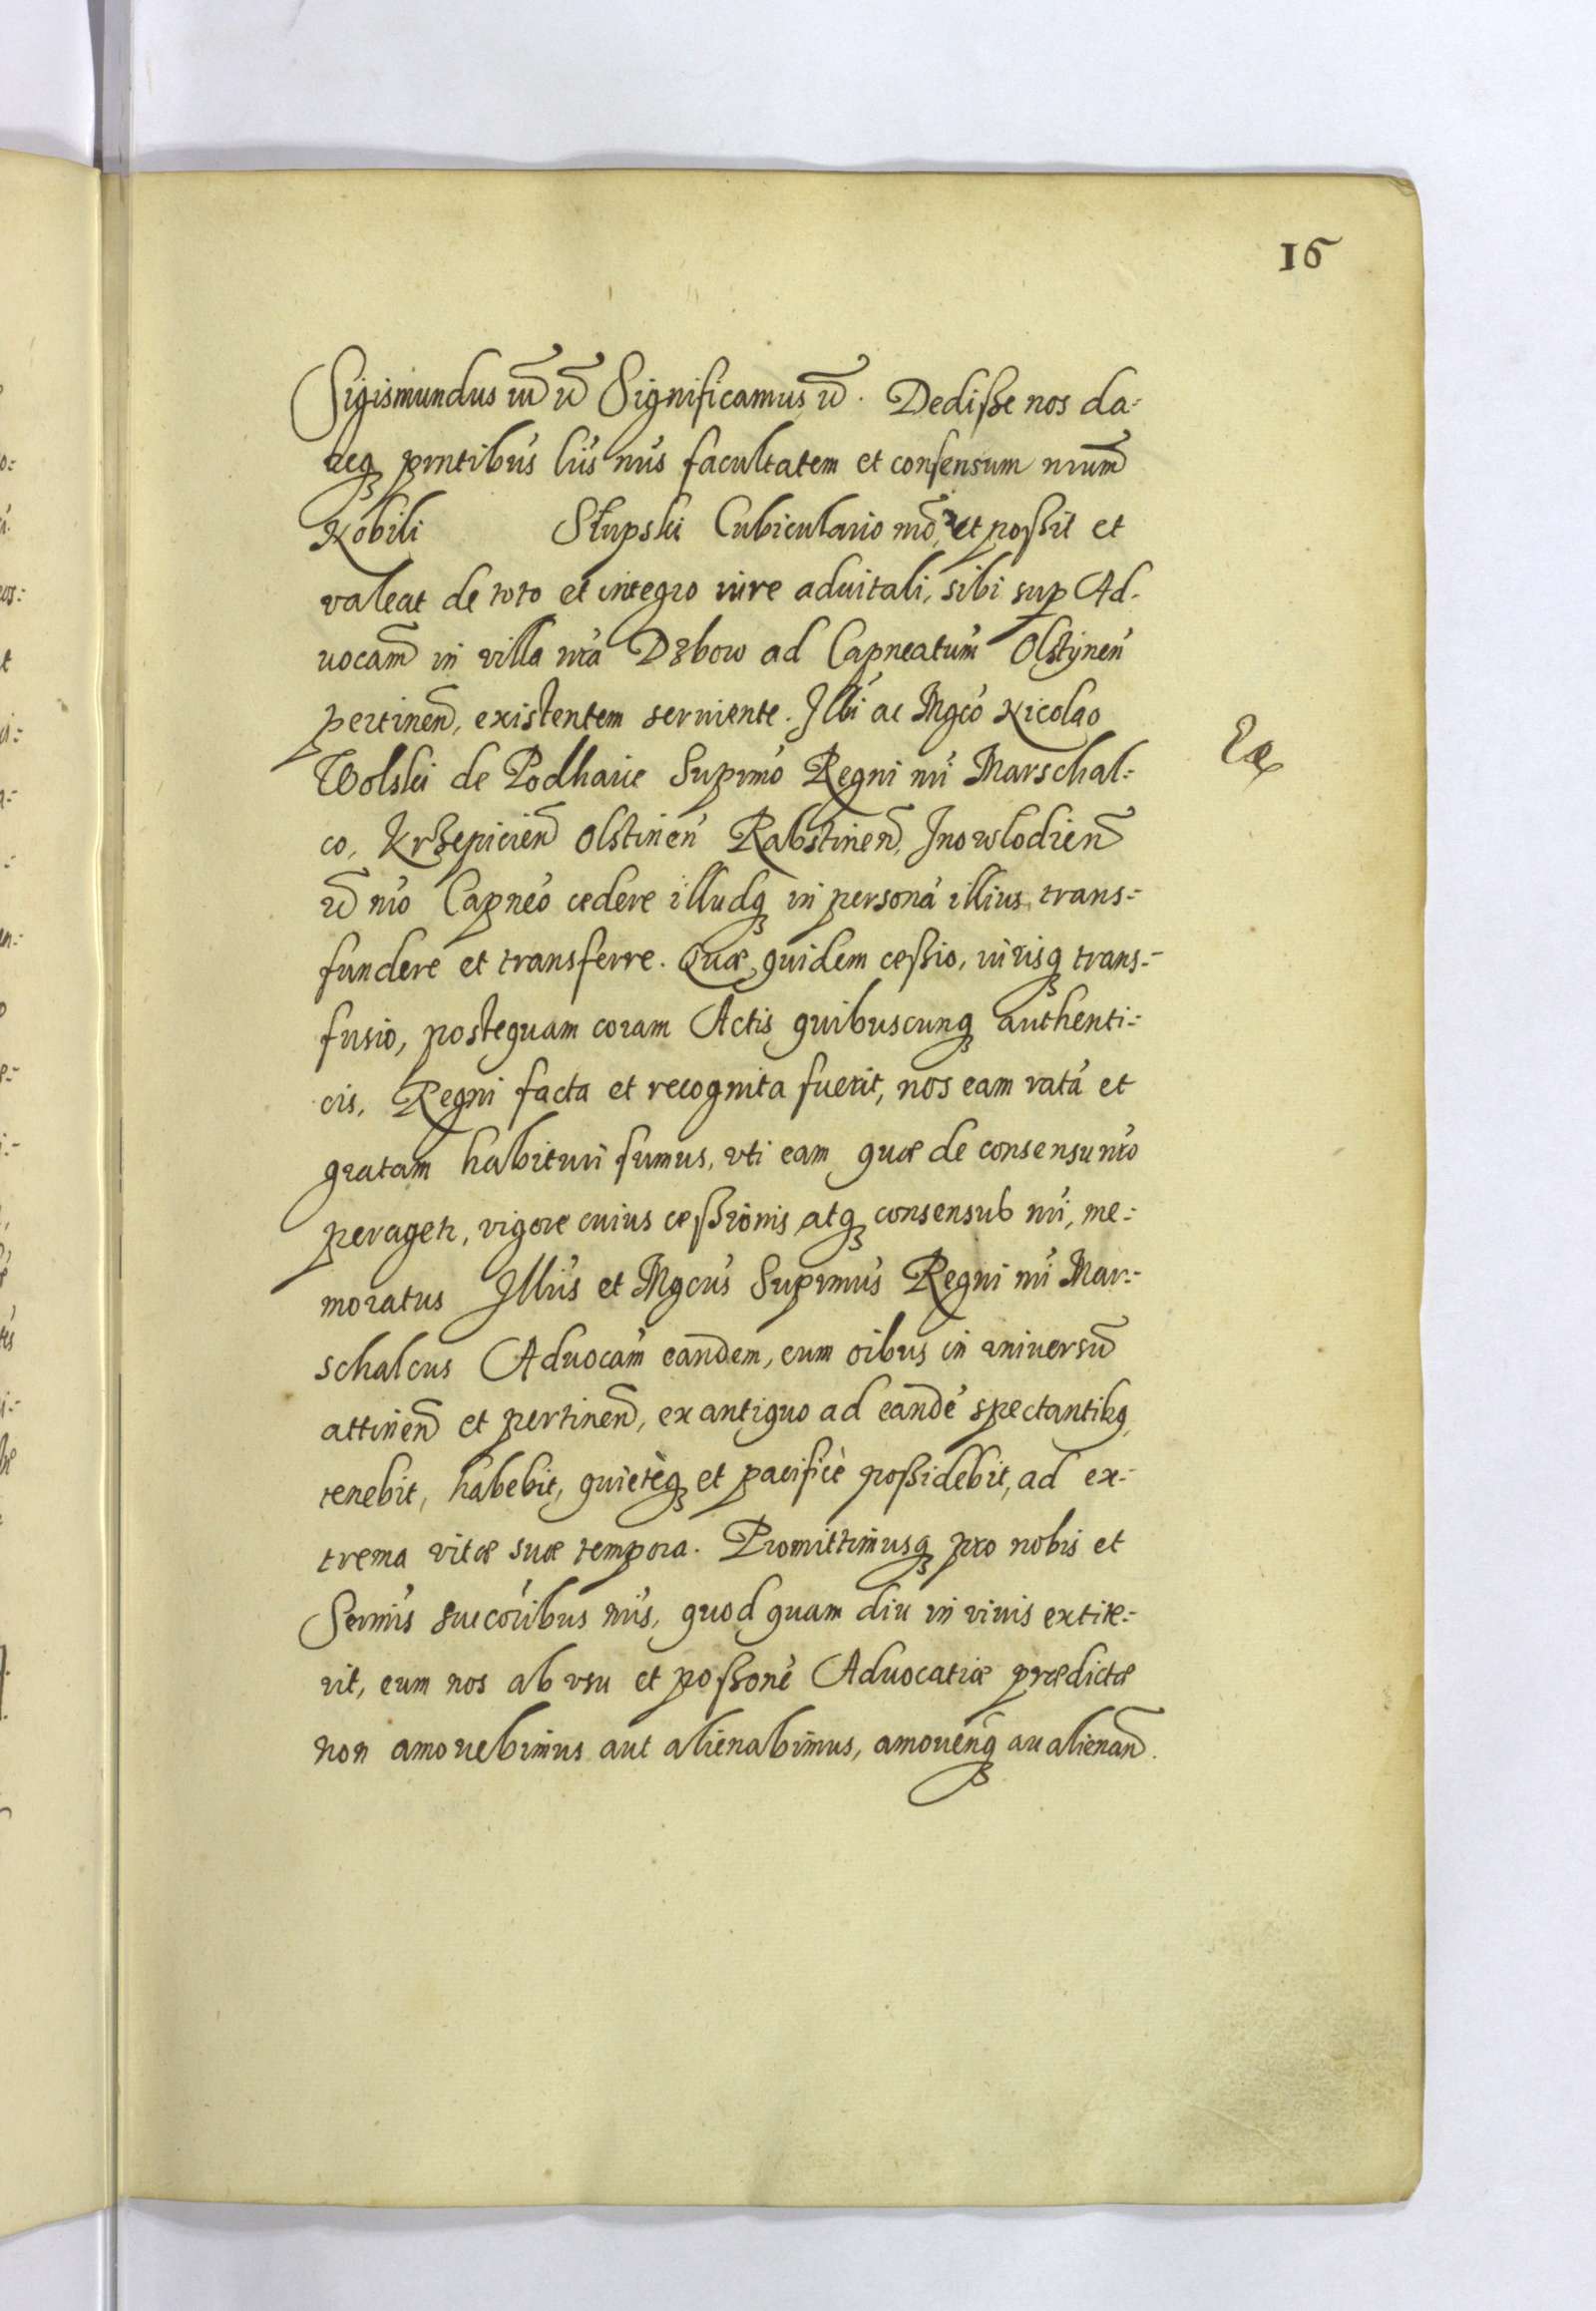 16
Sigismundus III etc Significamus etc. Dedisse nos da-
req3 pntibus lris nris facultatem et consensum nrum
Nobili Słupski Cubiculario nro, vt possit et
valeat de toto et integro iure aduitali, sibi sup Ad-
uocam in villa nra Dzbow ad Capneatum Olstynen
pertinen, existentem seruiente. Illri ac Mgco Nicolao
Wolski de Podhaice Supremo Regni nri Marschal-
co, Krzepicien Olstinen Rabstinen, Inowlodien
etc nro Capneo cedere illudq3 in persona illius trans-
fundere et transferre. Quæ quidem cessio, iurisq3 trans-
fusio, postequam coram Actis quibuscunq3 authenti-
cis, Regni facta et recognita fuerit, nos eam ratã et
gratam habituri sumus, vti eam quæ de consensu nro
peragetr, vigore cuius cessionis atq3 consensus nri, me-
moratus Illris et Mgcus Supremus Regni nri Mar-
schalcus Aduocam eandem, cum oibus in vniversum
attinen et pertinen, ex antiquo ad eandẽ spectantibq3,
tenebit, habebit, quietèq3 et pacificè possidebit, ad ex-
trema vitæ suæ tempora. Promittimusq3 pro nobis et
Sermis succoribus nris, quod quam diu in viuis extite-
rit, eum nos ab vsu et possone Aduocatiæ prædictæ
non amouebimus aut alienabimus, amouenq3 au alienan.